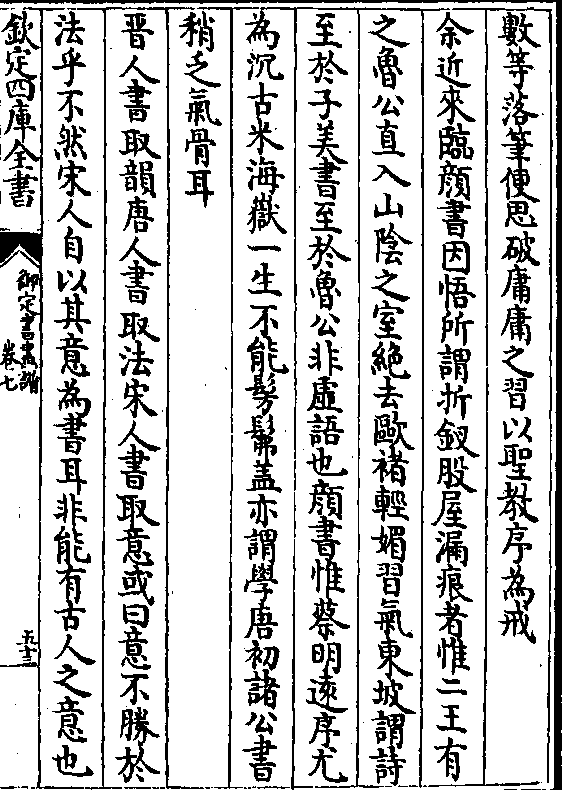 數等落筆便思破庸庸之習以聖教序為戒
余近來臨顔書因悟所謂折釵股屋漏痕者惟二王有
之魯公直入山陰之室絶去歐褚輕媚習氣東坡謂詩
至於子美書至於魯公非虚語也顔書惟蔡明逺序尤
為沉古米海嶽一生不能髣髴盖亦謂學唐初諸公書
稍乏氣骨耳
晋人書取韻唐人書取法宋人書取意或曰意不勝於
法乎不然宋人自以其意為書耳非能有古人之意也
欽定四庫全書
御定書畫譜
卷七
五十三